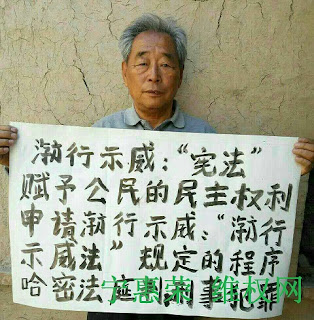 游行示威:“宪法”
赋予公民的民主权利
申请游行示威:“游行
示威法”规定的程序
哈密法
宁惠荣 维权网